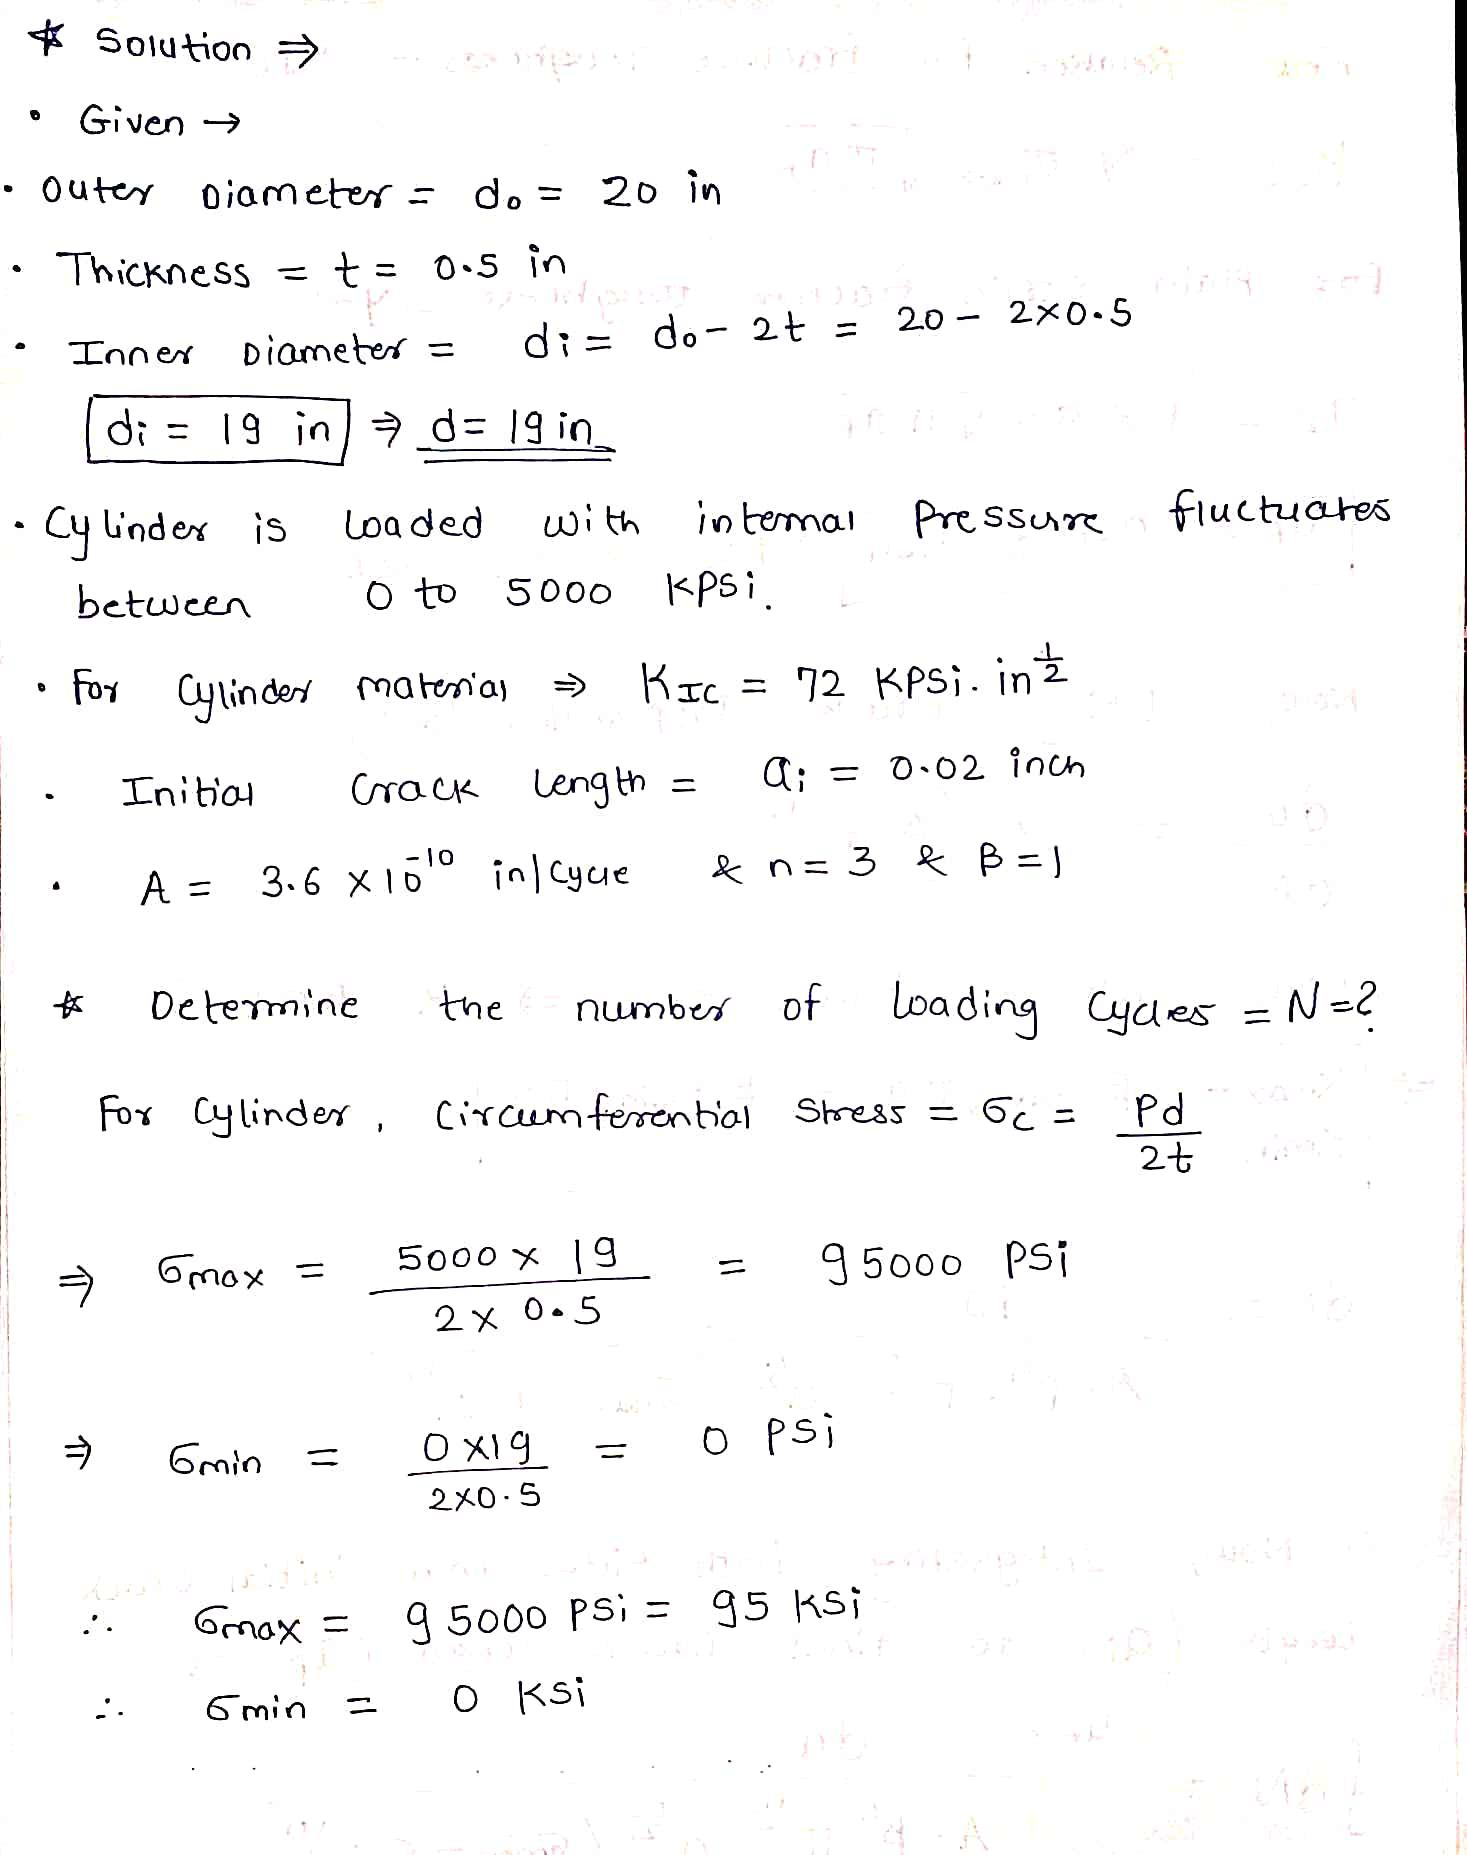 * Solution ⇒
• Given →
• Outer Diameter = do = 20 in
• Thickness = t = 0.5 in
• Inner Diameter = di = do - 2t = 20 - 2×0.5
di = 19 in ⇒ d = 19 in
• Cylinder is loaded with internal Pressure fluctuates
between 0 to 5000 kpsi.
• For Cylinder material ⇒ KIC = 72 kpsi. in^1/2
• Initial Crack length = ai = 0.02 inch
• A = 3.6 × 10^-10 in/cycle & n = 3 & β = 1
* Determine the number of loading cycles = N = ?
For Cylinder, Circumferential Stress = σc = Pd/2t
⇒ σmax = 5000 × 19 / 2 × 0.5 = 95000 psi
⇒ σmin = 0 × 19 / 2×0.5 = 0 psi
∴ σmax = 95000 psi = 95 ksi
∴ σmin = 0 ksi